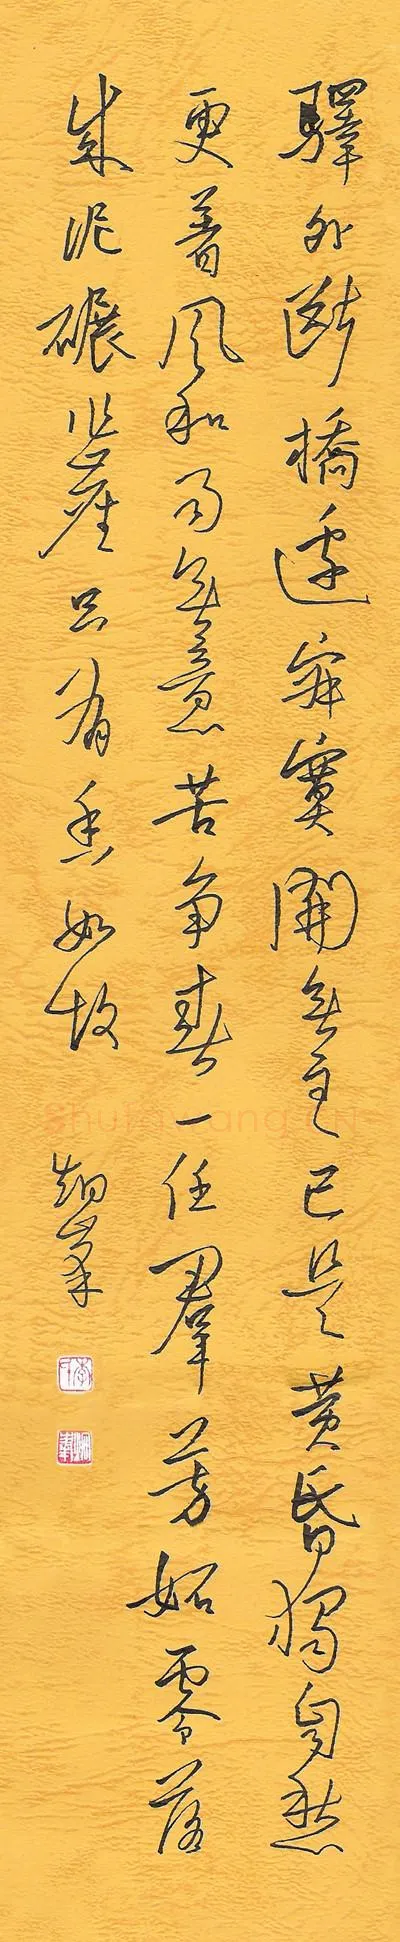 驛外斷橋邊寂寞開無主已是黃昏獨自愁
更著風和雨無意苦争春一任羣芳妬零落
成泥碾作塵只有香如故